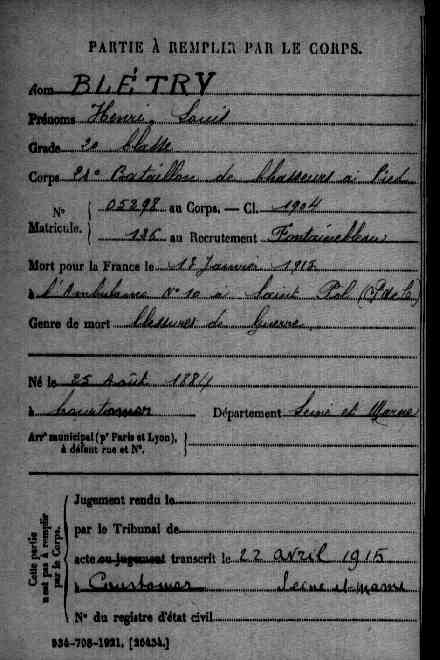 PARTIE À REMPLIR PAR LE CORPS.
Nom BLÉTRY
Prénoms Henri, Louis
Grade 2e Classe
Corps 21e Bataillon de Chasseurs à Pied
N° Matricule. 05298 au Corps. — Cl. 1904
136 au Recrutement Fontainebleau
Mort pour la France le 18 Janvier 1915
à l'Ambulance N° 10 à Saint Pol (P de C)
Genre de mort blessures de Guerre
Né le 25 Août 1884
à Courtomer Département Seine et Marne
Arrt municipal (pr Paris et Lyon), à défaut rue et N°.
Cette partie n'est pas à remplir par le Corps.
Jugement rendu le
par le Tribunal de
acte ou jugement transcrit le 22 avril 1915
à Courtomer Seine et marne
N° du registre d'état civil
534-708-1921. [26434.]